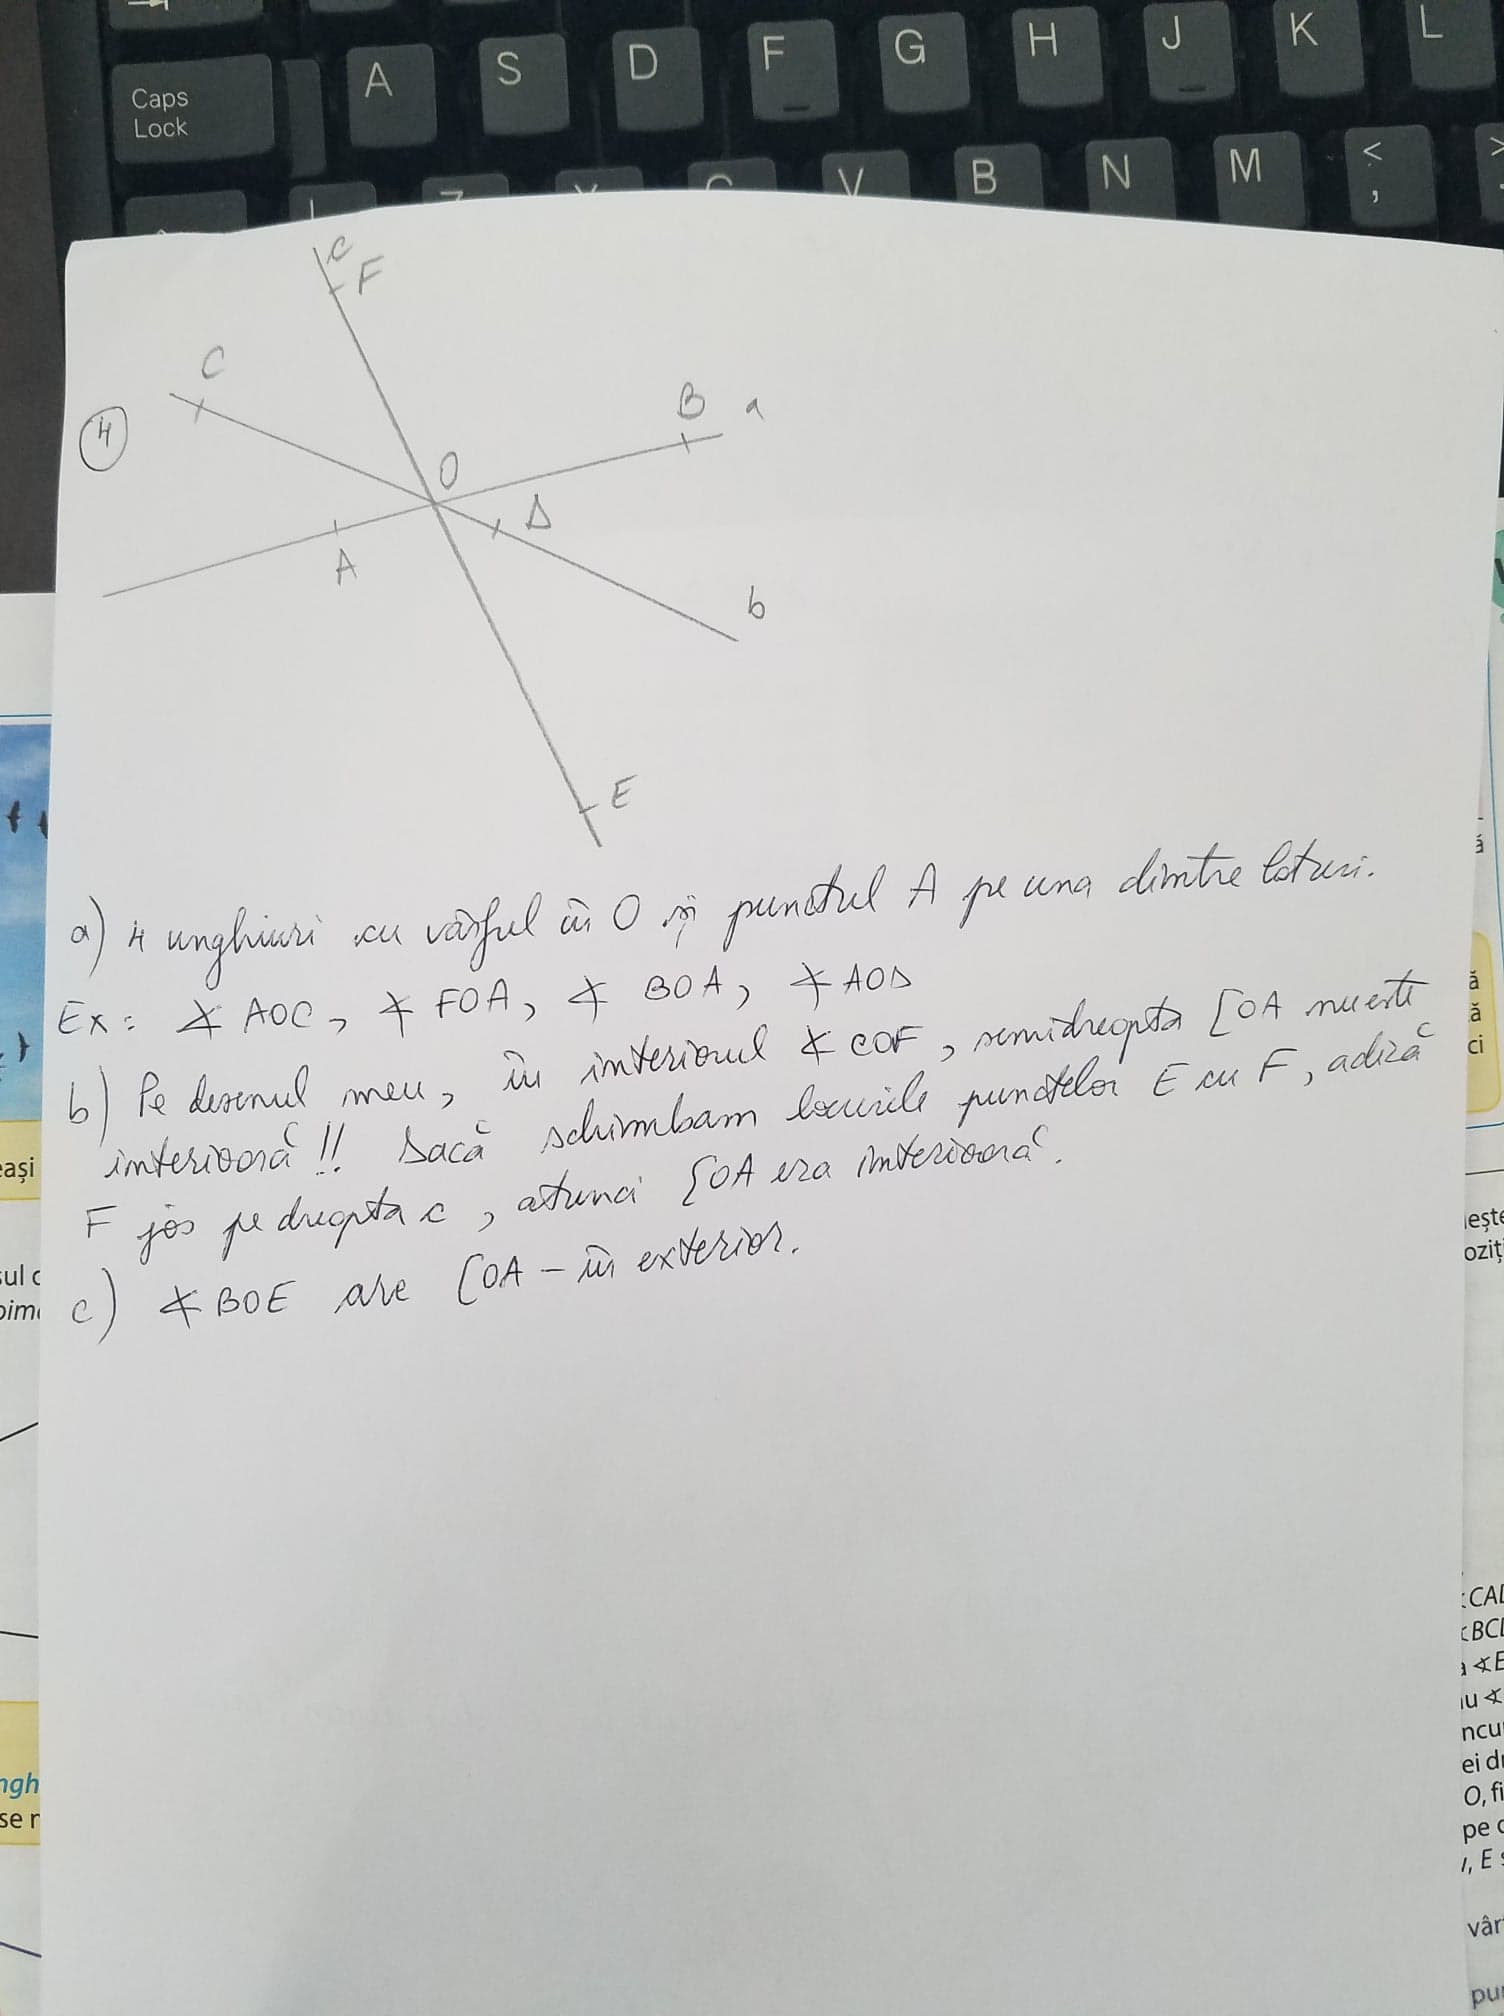 Caps
Lock
A S D F G H J K L
V B N M <
,
c
F
C
4
B a
O
D
A
b
E
a) 4 unghiuri cu vârful în O și punctul A pe una dintre laturi.
Ex: ∢ AOC, ∢ FOA, ∢ BOA, ∢ AOD
b) Pe desenul meu, în interiorul ∢ COF, semidreapta [OA nu este
interioară!! Dacă schimbam locurile punctelor E cu F, adică
F jos pe dreapta c, atunci [OA era interioară.
c) ∢ BOE are [OA – în exterior.
eași
ă
ci
CAD
∢BCD
∢E
ei d
O, fi
pe
, E
vâr